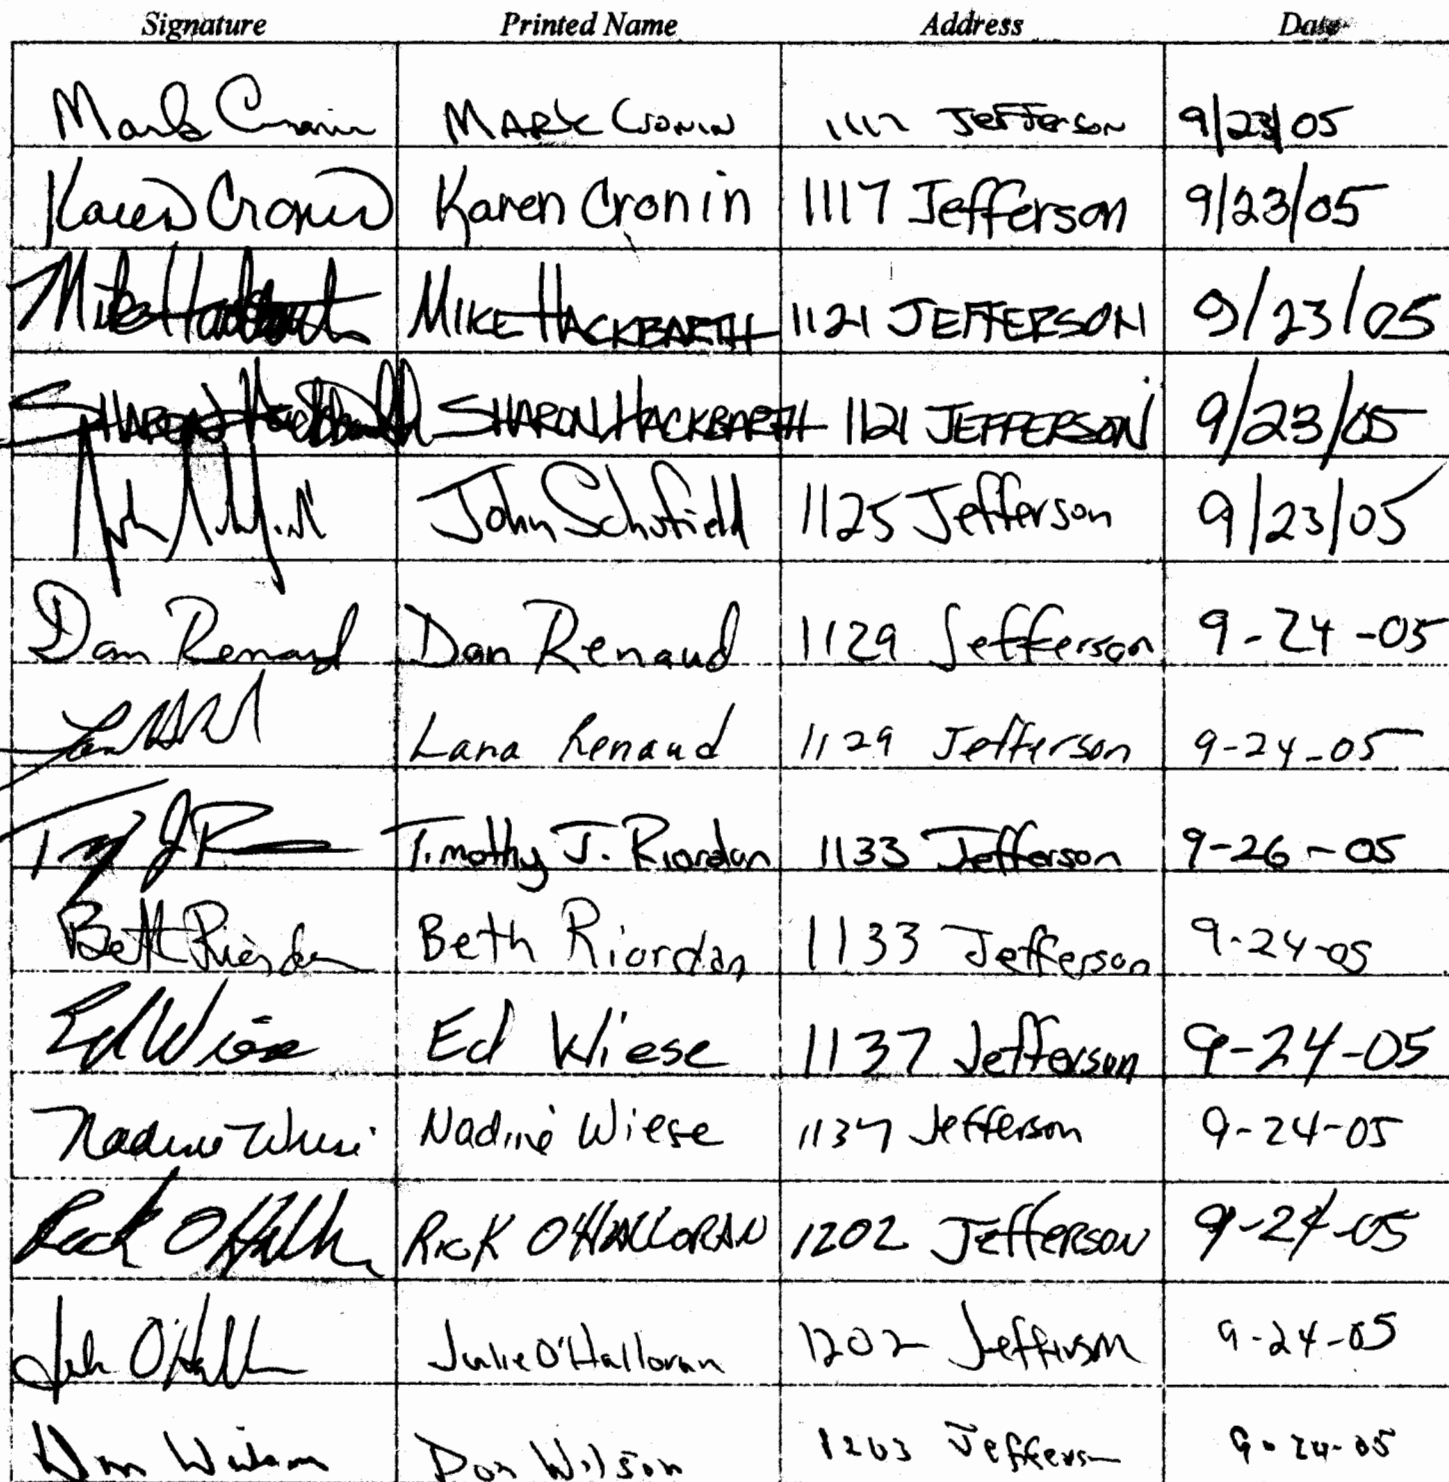 Signature Printed Name Address Date
Mark Cronin MARK CRONIN 1117 Jefferson 9/23/05
Karen Cronin Karen Cronin 1117 Jefferson 9/23/05
Mike Hackbarth MIKE HACKBARTH 1121 JEFFERSON 9/23/05
SHARON Hackbarth SHARON HACKBARTH 1121 JEFFERSON 9/23/05
John Schofield 1125 Jefferson 9/23/05
Dan Renaud Dan Renaud 1129 Jefferson 9-24-05
Lana Renaud 1129 Jefferson 9-24-05
Timothy J. Riordan 1133 Jefferson 9-26-05
Beth Riordan Beth Riordan 1133 Jefferson 9-24-05
Ed Wiese Ed Wiese 1137 Jefferson 9-24-05
Nadine Wiese Nadine Wiese 1137 Jefferson 9-24-05
Rick O'Halloran RICK O'HALLORAN 1202 JEFFERSON 9-24-05
Julie O'Halloran 1202 Jefferson 9-24-05
Don Wilson Don Wilson 1203 Jefferson 9-24-05